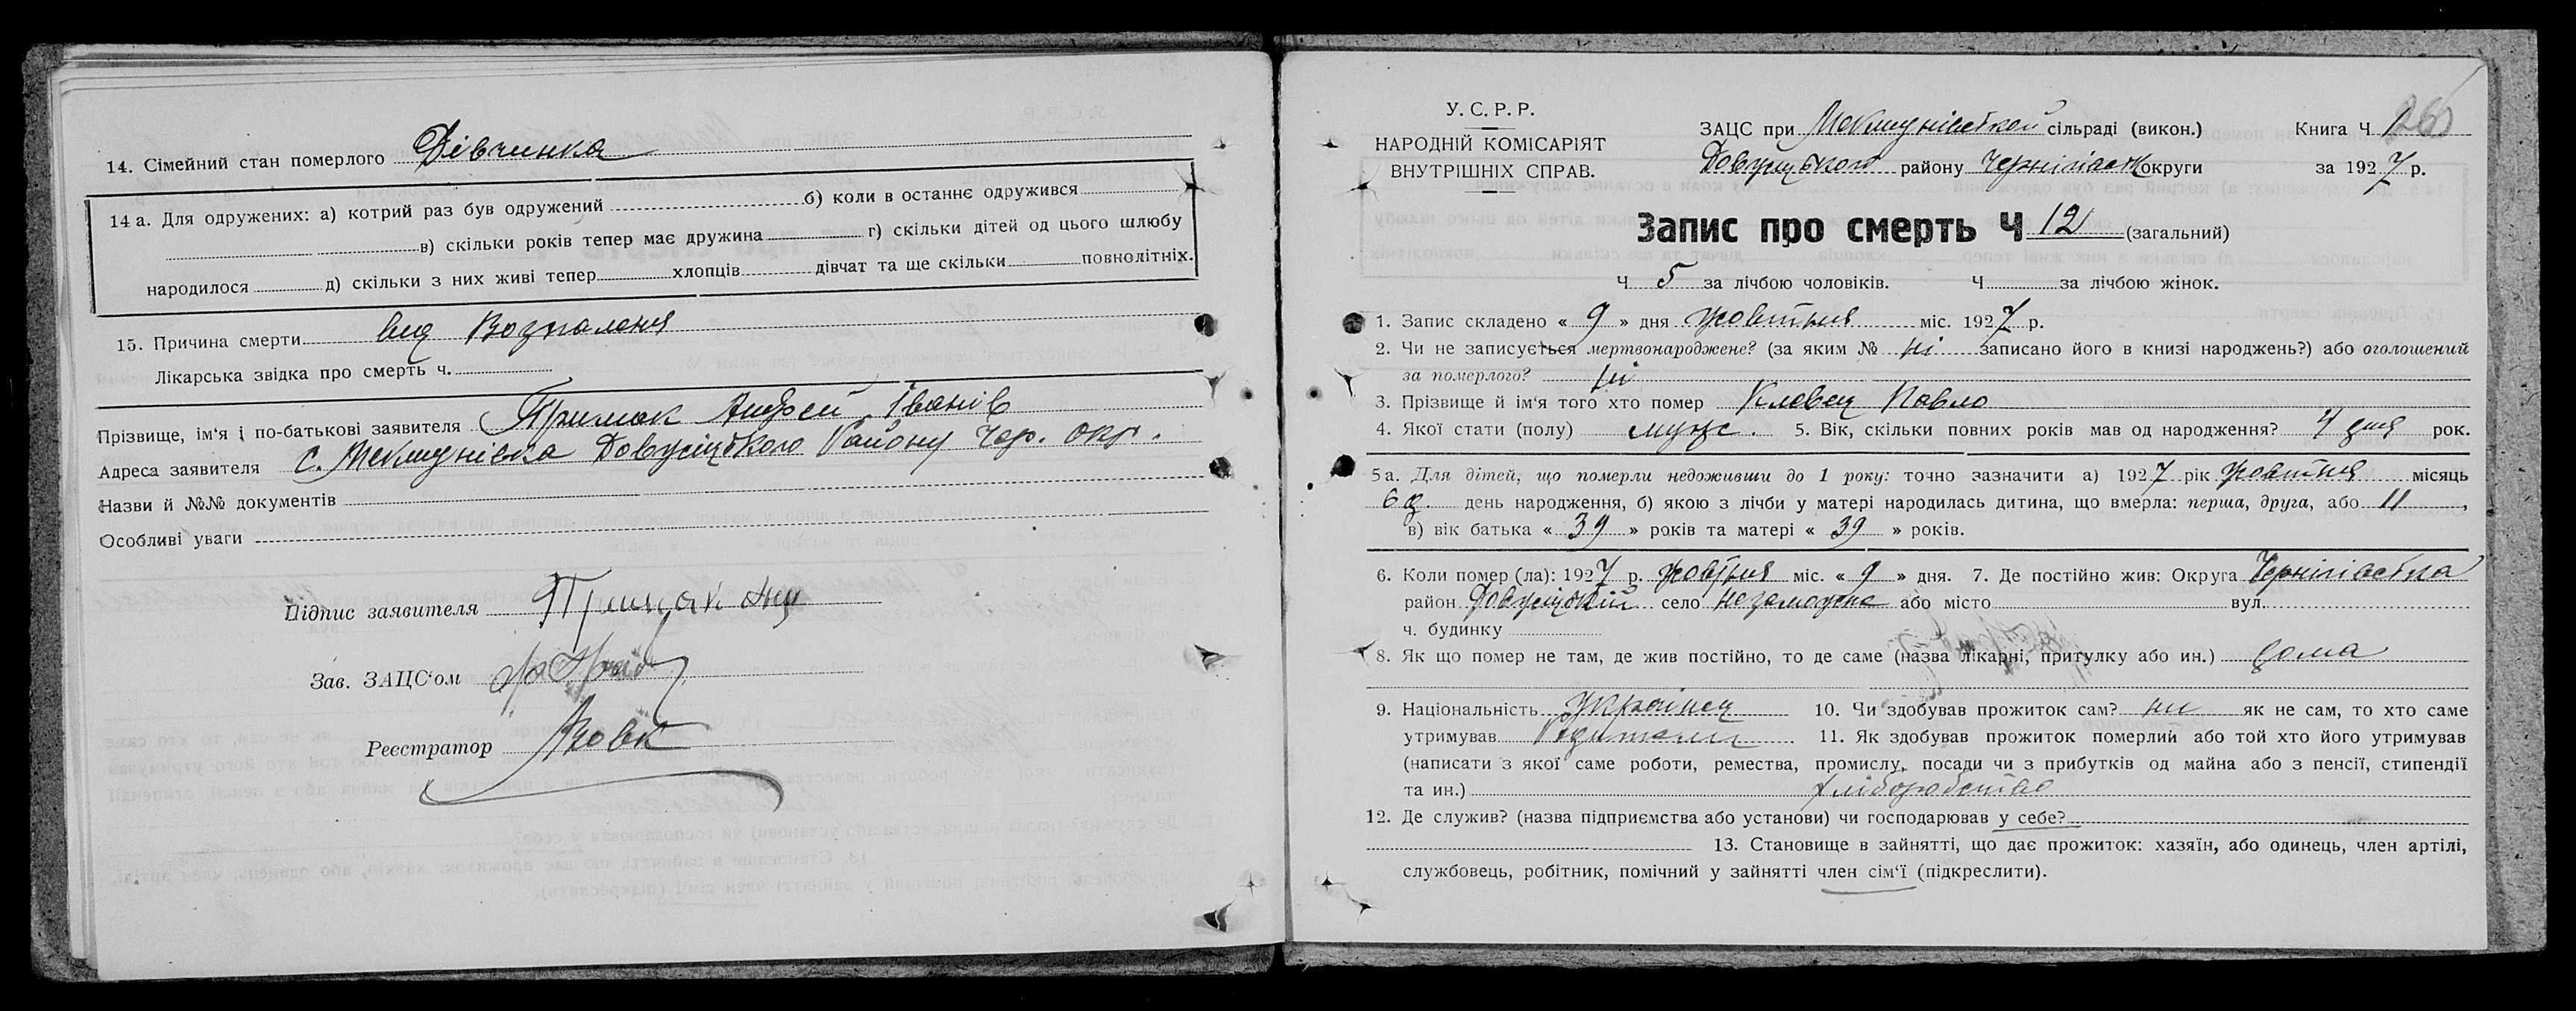 14. Сімейний стан померлого Дівчинка
14 а. Для одружених: а) котрий раз був одружений б) коли в останнє одружився
в) скільки років тепер має дружина г) скільки дітей од цього шлюбу
народилося д) скільки з них живі тепер хлопців дівчат та ще скільки повнолітніх.
15. Причина смерти від Возпаленія
Лікарська звідка про смерть ч.
Прізвище, ім‘я і по-батькові заявителя Примак Андрей Іванів
Адреса заявителя с. Району Чер. окр.
Назви й №№ документів
Особливі уваги
Підпис заявителя Примак Анд
Зав. ЗАЦС‘ом
Реєстратор
У. С. Р. Р.
НАРОДНІЙ КОМІСАРІЯТ
ВНУТРІШНІХ СПРАВ.
ЗАЦС при сільраді (викон.) Книга Ч 1
району округи за 1927 р.
260
Запис про смерть Ч 12 (загальний)
Ч 5 за лічбою чоловіків. Ч за лічбою жінок.
1. Запис складено « 9 » дня жовтня міс. 1927 р.
2. Чи не записується мертвонароджене? (за яким № ні записано його в книзі народжень?) або оголошений
за померлого? ні
3. Прізвище й ім‘я того хто помер Кловец Павло
4. Якої стати (полу) муж. 5. Вік, скільки повних років мав од народження? 4 дня рок.
5 а. Для дітей, що померли недоживши до 1 року: точно зазначити а) 1927 рік жовтня місяць
6 д. день народження, б) якою з лічби у матері народилась дитина, що вмерла: перша, друга, або 11,
в) вік батька « 39 » років та матері « 39 » років.
6. Коли помер (ла): 1927 р. жовтня міс. « 9 » дня. 7. Де постійно жив: Округа Чернігівська
район село незаможне або місто вул.
ч. будинку
8. Як що помер не там, де жив постійно, то де саме (назва лікарні, притулку або ин.) дома
9. Національність Українец 10. Чи здобував прожиток сам? ни як не сам, то хто саме
утримував Родители 11. Як здобував прожиток померлий або той хто його утримував
(написати з якої саме роботи, ремества, промислу, посади чи з прибутків од майна або з пенсії, стипендії
та ин.) хліборобство
12. Де служив? (назва підприємства або установи) чи господарював у себе?
13. Становище в зайнятті, що дає прожиток: хазяїн, або одинець, член артілі,
службовець, робітник, помічний у зайнятті член сім‘ї (підкреслити).